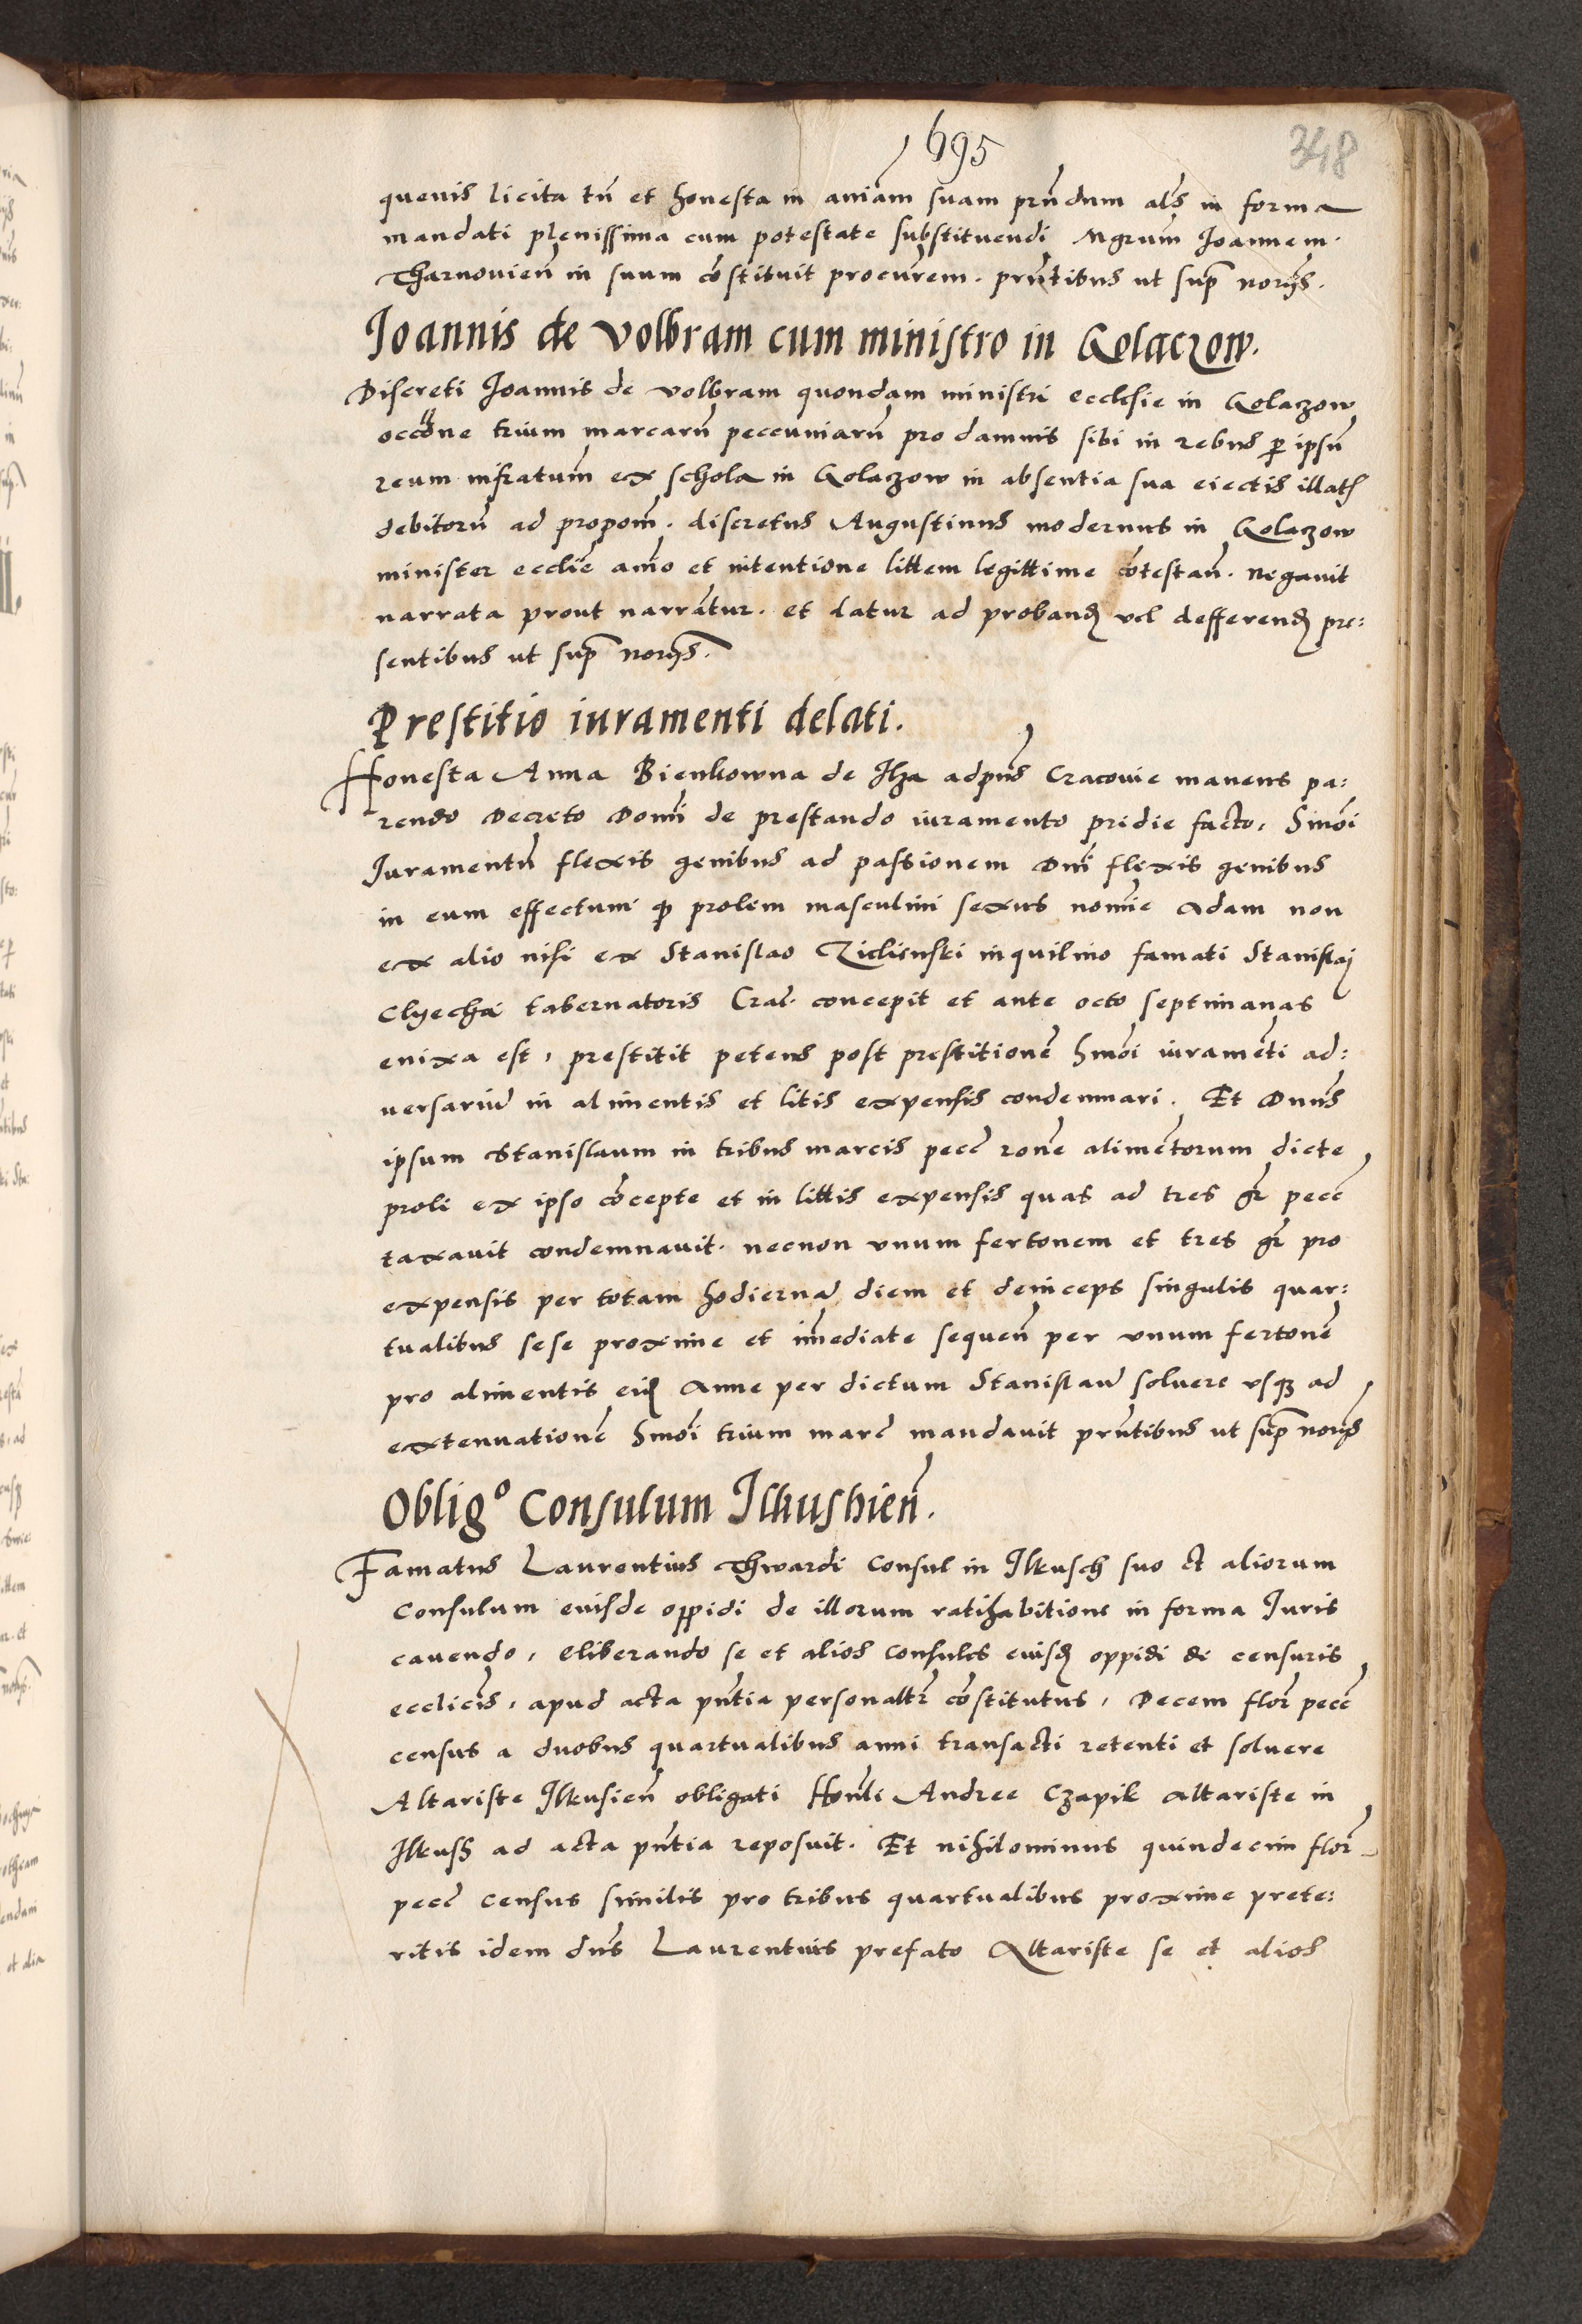 695
348
quevis licita tn̄ et honesta in aniam̄ suam prn̄dum als̄ in forma
mandati plenissima cum potestate substituendi Mgrum̄ Joannem.
Tharnovien̄ in suum cōstituit procur̄em. prn̄tibus ut sup̄ norys̄.
Joannis de Volbram cum ministro in Golaczow.
Discreti Joannis de volbram quondam ministri ecclesie in Golaczow
occōne trium marcarū peccuniarū pro damnis sibi in rebus p ipsū
reum infratum̄ ex schola in Golaczow in absentia sua eiectis illatȷ
debitorū ad propom̄. discretus Augustinus modernus in Golaczow
minister eccliē anīo et intentione littem legittime cōtestan̄. negavit
narrata prout narrāntur. et datur ad proband vel defferend pre:
sentibus ut sup̄ norys̄.
Prestitio iuramenti delati.
Honesta Anna Bienkowna de Ilza adpn̄s Cracovie manens pa:
rendo Decreto Domī de prestando iuramento pridie facto, Smōi
Juramentū flexis genibus ad passionem Dnī flexis genibus
in eum effectum q prolem masculini sexus nomīe Adam non
ex alio nisi ex Stanislao Zielienski inquilino famati Stanislaj
Clyecha tabernatoris Crac̄. concepit et ante octo septimanas
enixa est, prestitit petens post prestitionē Smōi iuramēti ad:
versariū in alimentis et litis expensis condemnari. Et Dnus̄
ipsum Stanislaum in tribus marcis pecc̄ ronē alimētorum dicte
proli ex ipso cōcepte et in littis expensis quas ad tres gr̄ pecc̄
taxavit condemnavit. necnon unum fertonem et tres gr̄ pro
expensis per totam hodiernā diem et deinceps singulis quar:
tualibus sese proxime et imēdiate sequen̄ per unum fertonē
pro alimentis eiȷd Anne per dictum Stanislaū solvere usqʒ ad
extenuationē Smōi trium marc̄ mandavit prn̄tibus ut sup̄ norys̄
Oblig° Consulum Ilkushien̄.
Famatus Laurentius Thwardi Consul in Ilkusch suo et aliorum
Consulum euisde oppidi de illorum ratihabitione in forma Juris
cavendo, eliberando se et alios Consules euisd oppidi de censuris
ecclicīs, apud acta pn̄tia personaltr̄ cōstitutus, Decem flor̄ pecc̄
census a duobus quartualibus anni transacti retenti et solvere
Altariste Ilkusien̄ obligati Hon̄li Andree Czapik altariste in
Ilkusch ad acta pn̄tia reposuit. Et nihilominus quindecim flor̄
pecc̄ census similis pro tribus quartualibus proxime prete:
ritis idem dn̄s Laurentius prefato Altariste se et alios